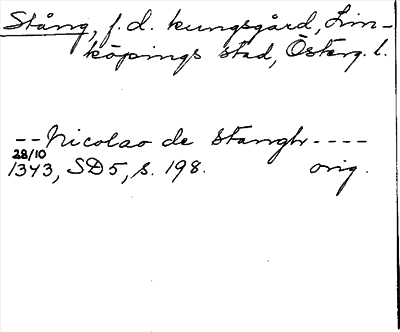 Stång, f.d. kungsgård, Lin-
köpings stad, Österg. l.
-- Nicolao de Stangh ----
28/10
1343, SD5, s. 198. orig.